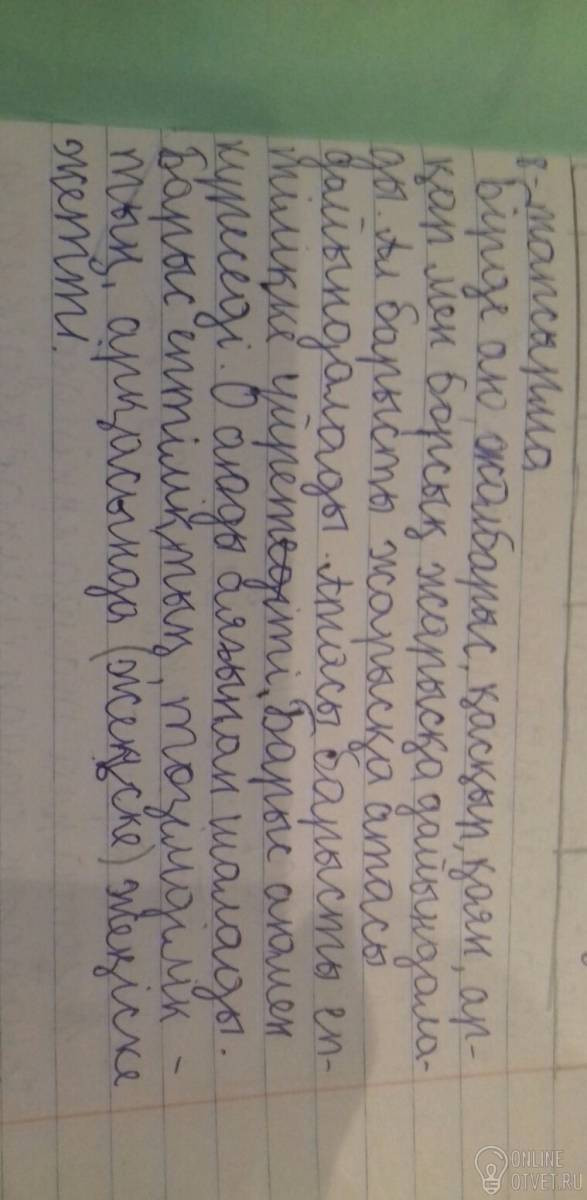 8-тапсырма
Бірде аю жолбарыс, қасқыр, қоян, ар-
қар мен борсық жарысқа дайындала-
ды. Ал барысты жарысқа атасы
дайындалады. Атасы барысты еп-
тілікке үйретеді. Барыс аюмен
күреседі. О аюды аяғынан шалады.
Барыс ептіліктың, төзімділік-
тың, арқасында (жеңіске) жеңіске
жетті.
ONLINE
OTVET.RU